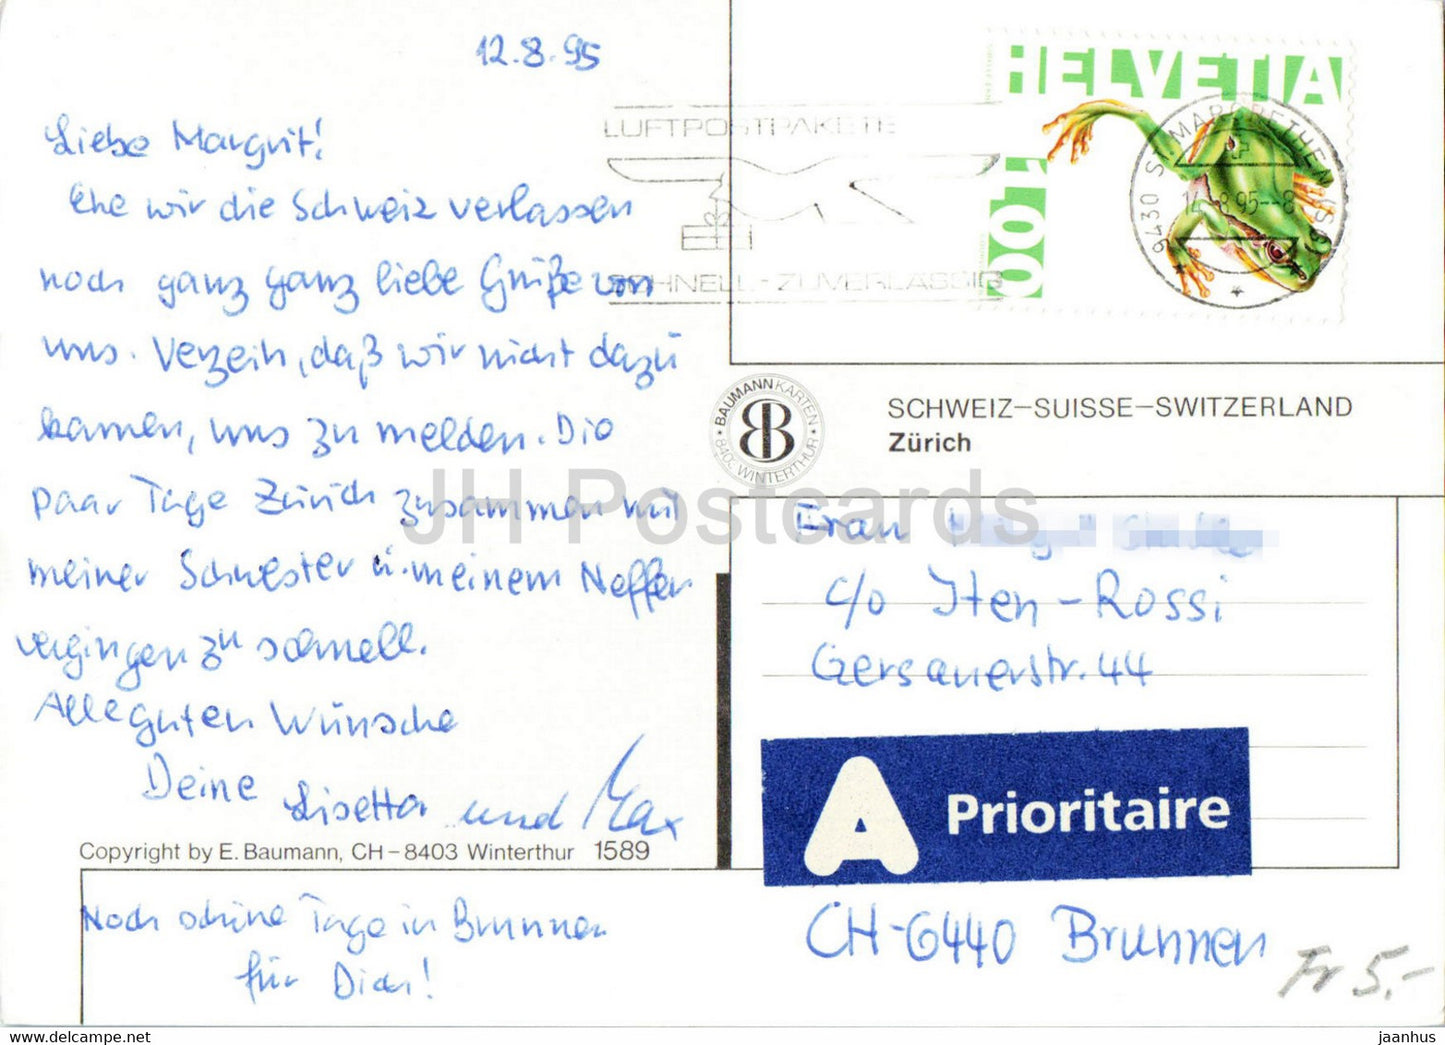 12.8.95
Liebe Margrit!
Ehe wir die Schweiz verlassen
noch ganz ganz liebe Grüße von
uns. Verzeih, daß wir nicht dazu
kamen, uns zu melden. Die
paar Tage Zürich zusammen mit
meiner Schwester u. meinem Neffen
vergingen zu schnell.
Alle guten Wünsche
Deine Lisetta und Max
Copyright by E. Baumann, CH-8403 Winterthur 1589
Noch schöne Tage in Brunnen
für Dich!
LUFTPOSTPAKETE
SCHNELL - ZUVERLÄSSIG
HELVETIA
1,00
9430 ST. MARGRETHEN SG
14.8.95--8
BAUMANN KARTEN
8400 WINTERTHUR
SCHWEIZ-SUISSE-SWITZERLAND
Zürich
JH Postcards
Frau
c/o Iten-Rossi
Gersauerstr. 44
A Prioritaire
CH-6440 Brunnen
Fr 5.-
https://www.delcampe.net
jaanhus